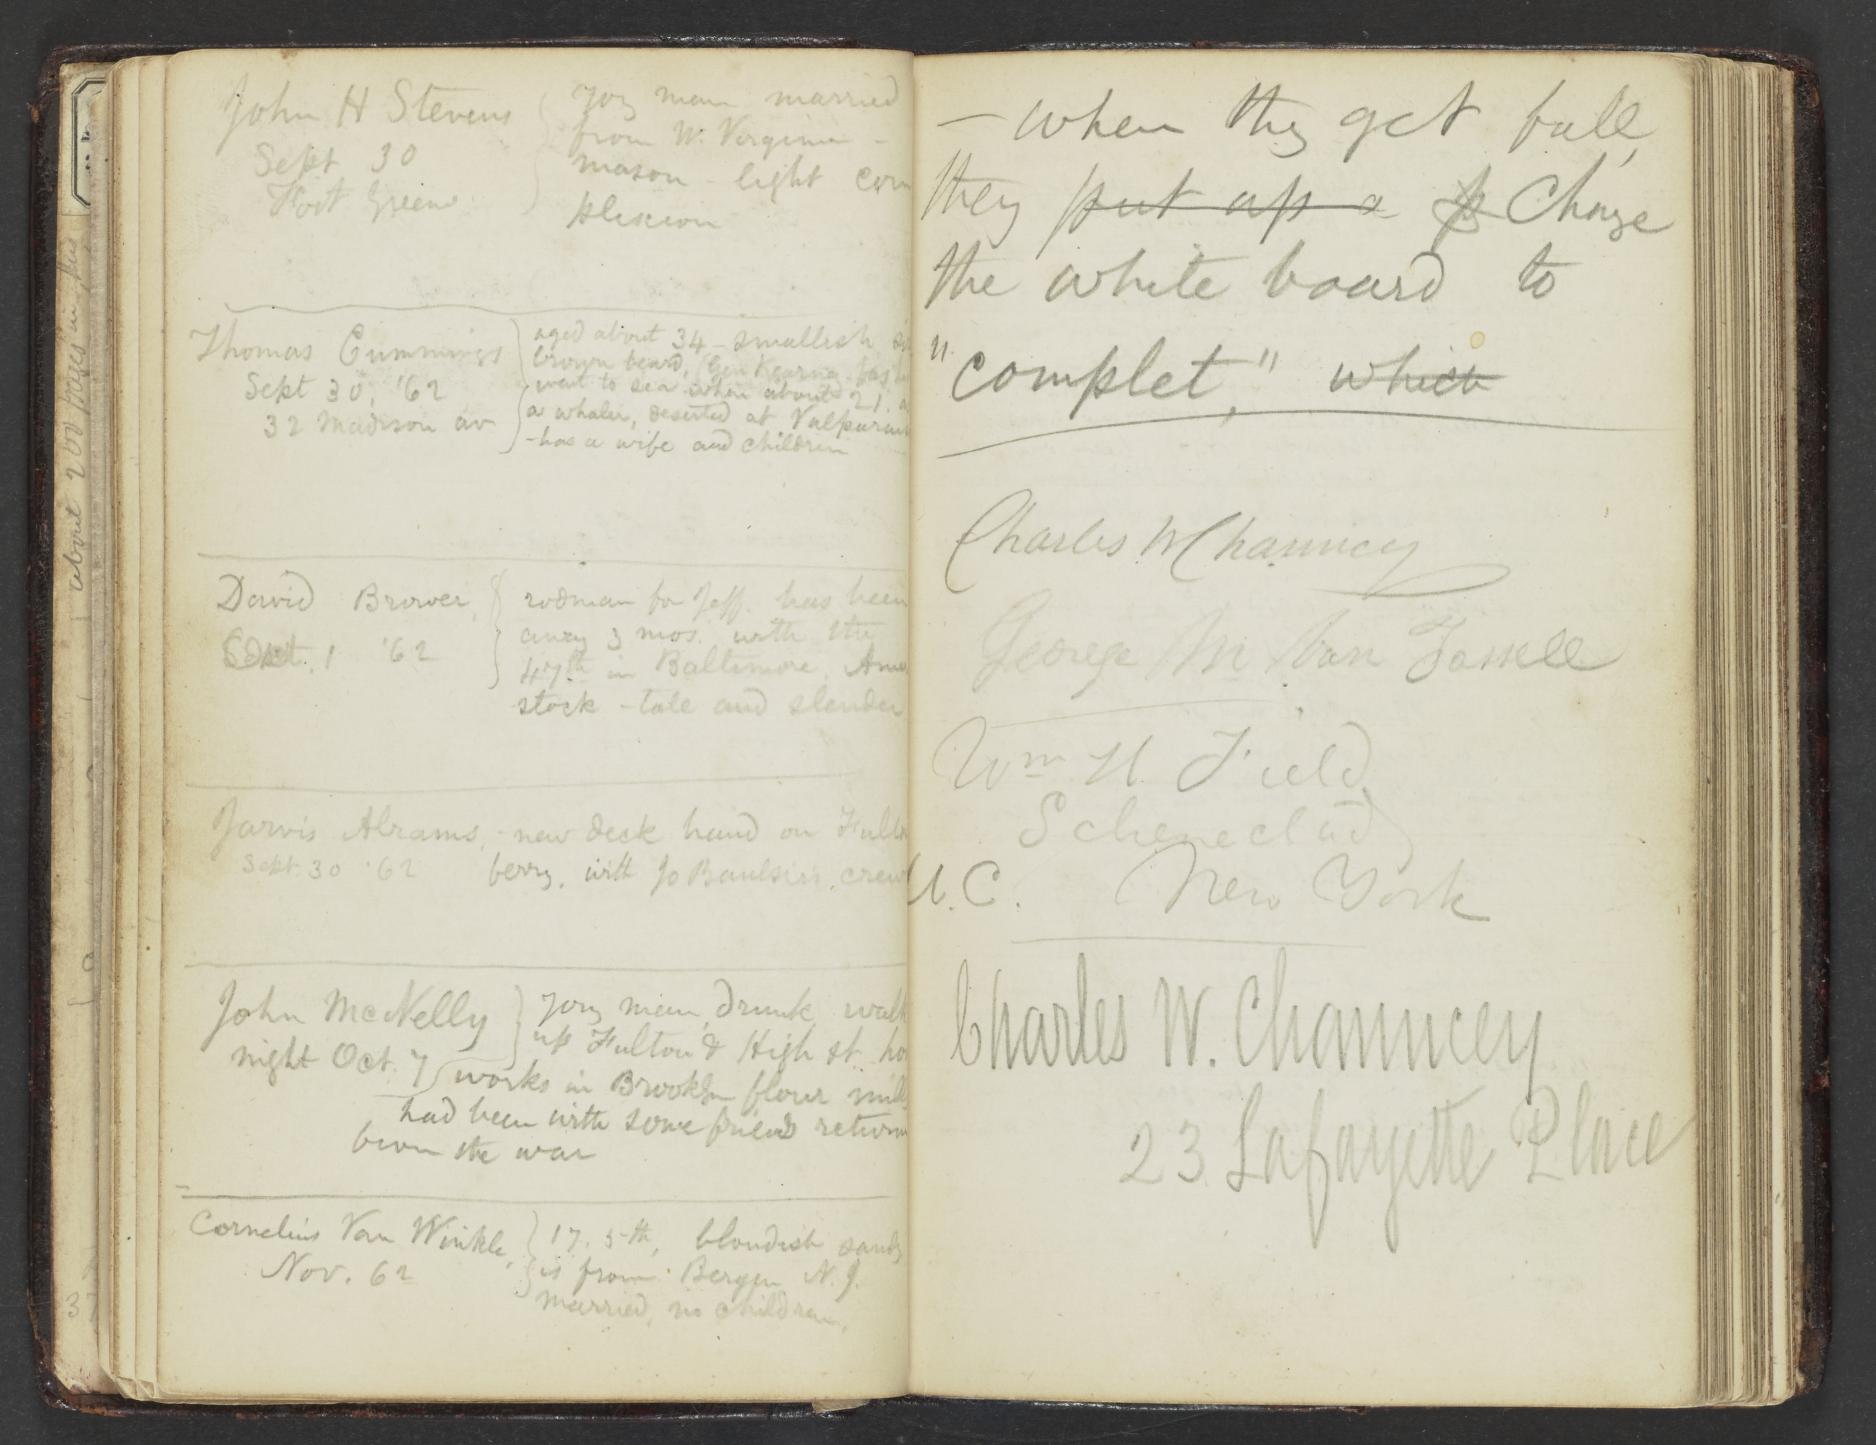 John H Stevens
Sept 30
Fort Greene
yog man married
from W. Virginia -
mason - light com
plexion
Thomas Cummings
Sept 30, '62
32 Madison av
aged about 34 - smallish
brown beard, Gen Kearns
went to sea when about 21.
a whaler, deserted at Valparais
- has a wife and children
David Brower,
Sept. 1 '62
rodman for Jeff. has been
away 3 mos. with the
47th in Baltimore. Amer
stock - tall and slender
Jarvis Abrams, - new deck hand on Fulton
Sept. 30 '62 ferry, with Jo Baulsirs, crew
John McNelly
night Oct. 7
yog man, drunk, walk
up Fulton & High st. ho
works in Brooklyn flour mill
had been with some friends return
from the war
Cornelius Van Winkle,
Nov. 62
17. 5th, blondish sandy
is from Bergen N. J.
married, no children,
about 200 pages in
37
- when they get full,
they put up a Chage
the white board to
"complet," which
Charles W Chauncey
George M Van Tassell
Wm H. Field
Schenectady
N.C. New York
Charles W. Chauncey
23 Lafayette Place